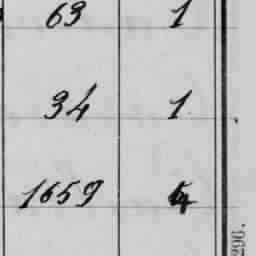 63 1
34 1
1659
296.